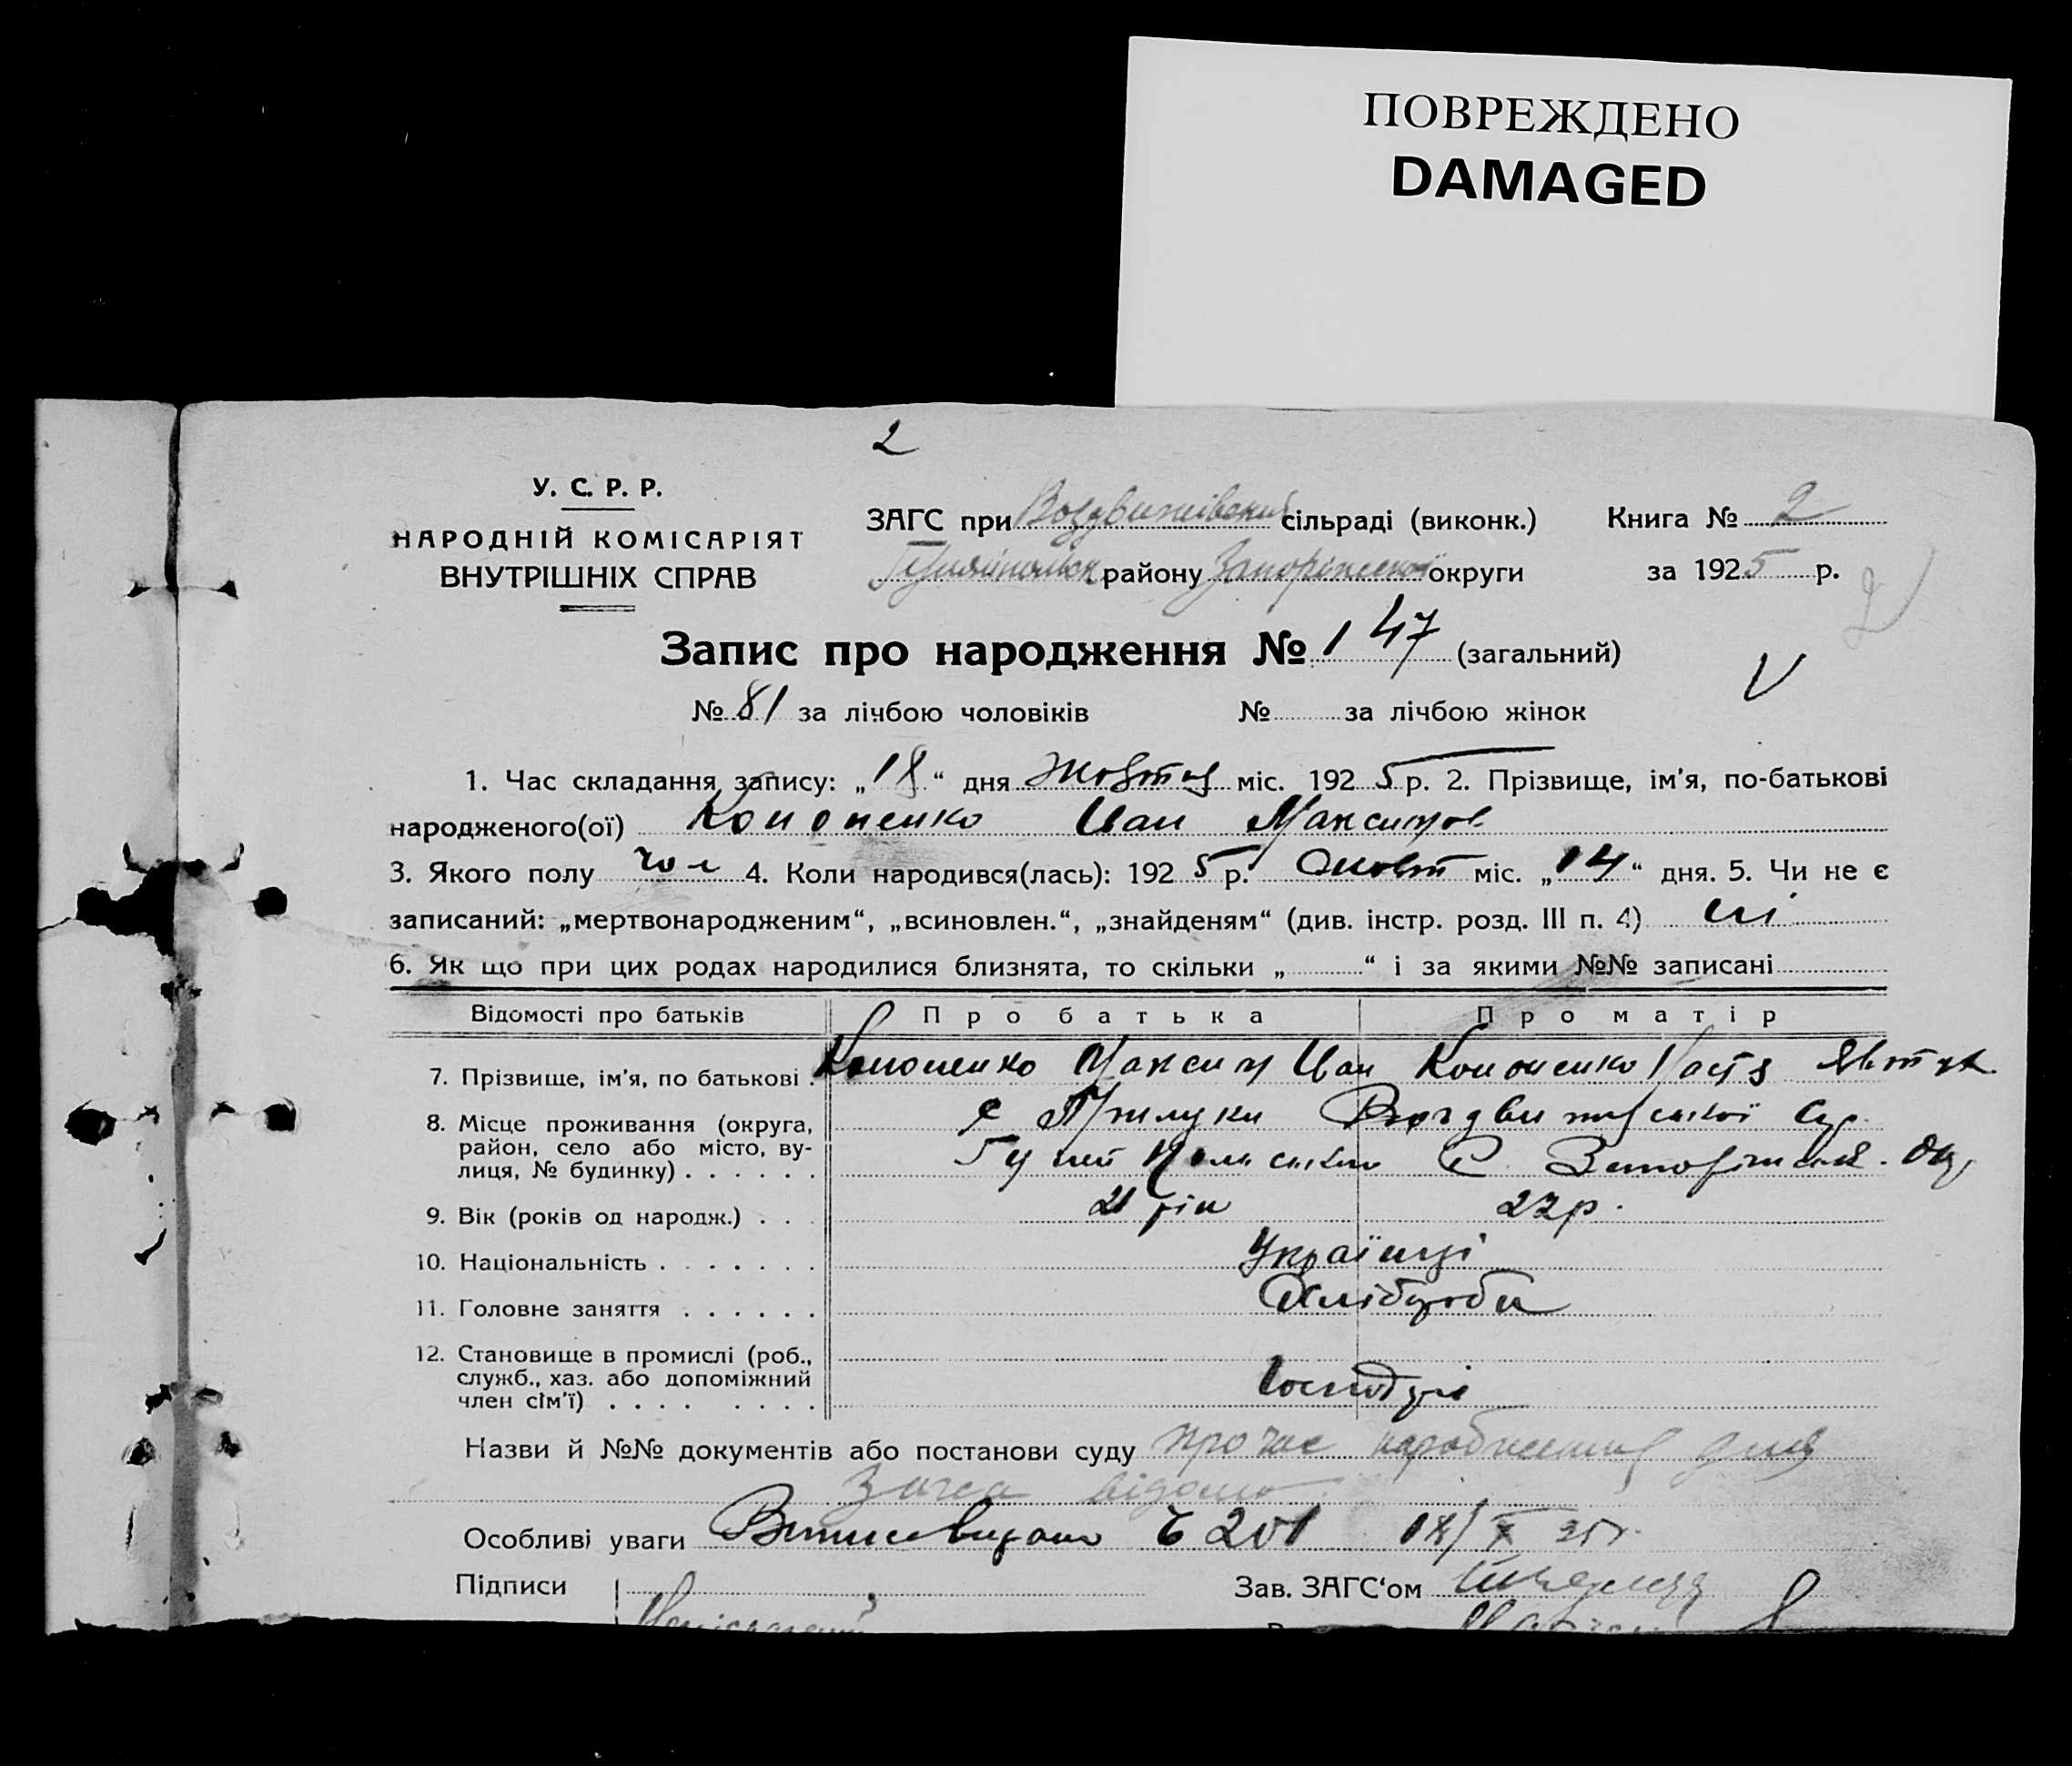 ПОВРЕЖДЕНО
DAMAGED
2
У. С. Р. Р.
НАРОДНІЙ КОМІСАРІЯТ
ВНУТРІШНІХ СПРАВ
ЗАГС при Воздвижівській сільраді (виконк.)
Книга № 2
району Запоріжської округи
за 1925 р.
2
Запис про народження № 147 (загальний)
№ 81 за лічбою чоловіків № за лічбою жінок
V
1. Час складання запису: „18“ дня Жовтня міс. 1925 р. 2. Прізвище, ім'я, по-батькові
народженого(ої) Кононенко Иван Максимов
3. Якого полу чол 4. Коли народився(лась): 1925 р. Жовт міс. „14“ дня. 5. Чи не є
записаний: „мертвонародженим“, „всиновлен.“, „знайденям“ (див. інстр. розд. III п. 4) ні
6. Як що при цих родах народилися близнята, то скільки „ “ і за якими №№ записані
Відомості про батьків Про батька Про матір
7. Прізвище, ім'я, по батькові . Кононенко Максим Иван Кононенко Настя Явтух
8. Місце проживання (округа, с Прилуки Воздвижівської
район, село або місто, ву-
лиця, № будинку) . . . . . . Гуляй Польського Р Запоріжськ. Окр
9. Вік (років од народж.) . . . 21 рік 22 р.
10. Національність . . . . . . . Українці
11. Головне заняття . . . . . . Хлібороби
12. Становище в промислі (роб.,
служб., хаз. або допоміжний
член сім'ї) . . . . . . . . Господарі
Назви й №№ документів або постанови суду про час народження дня
Загса відомо
Особливі уваги Випис видано 201 18/X 25 г.
Підписи
Зав. ЗАГС‘ом